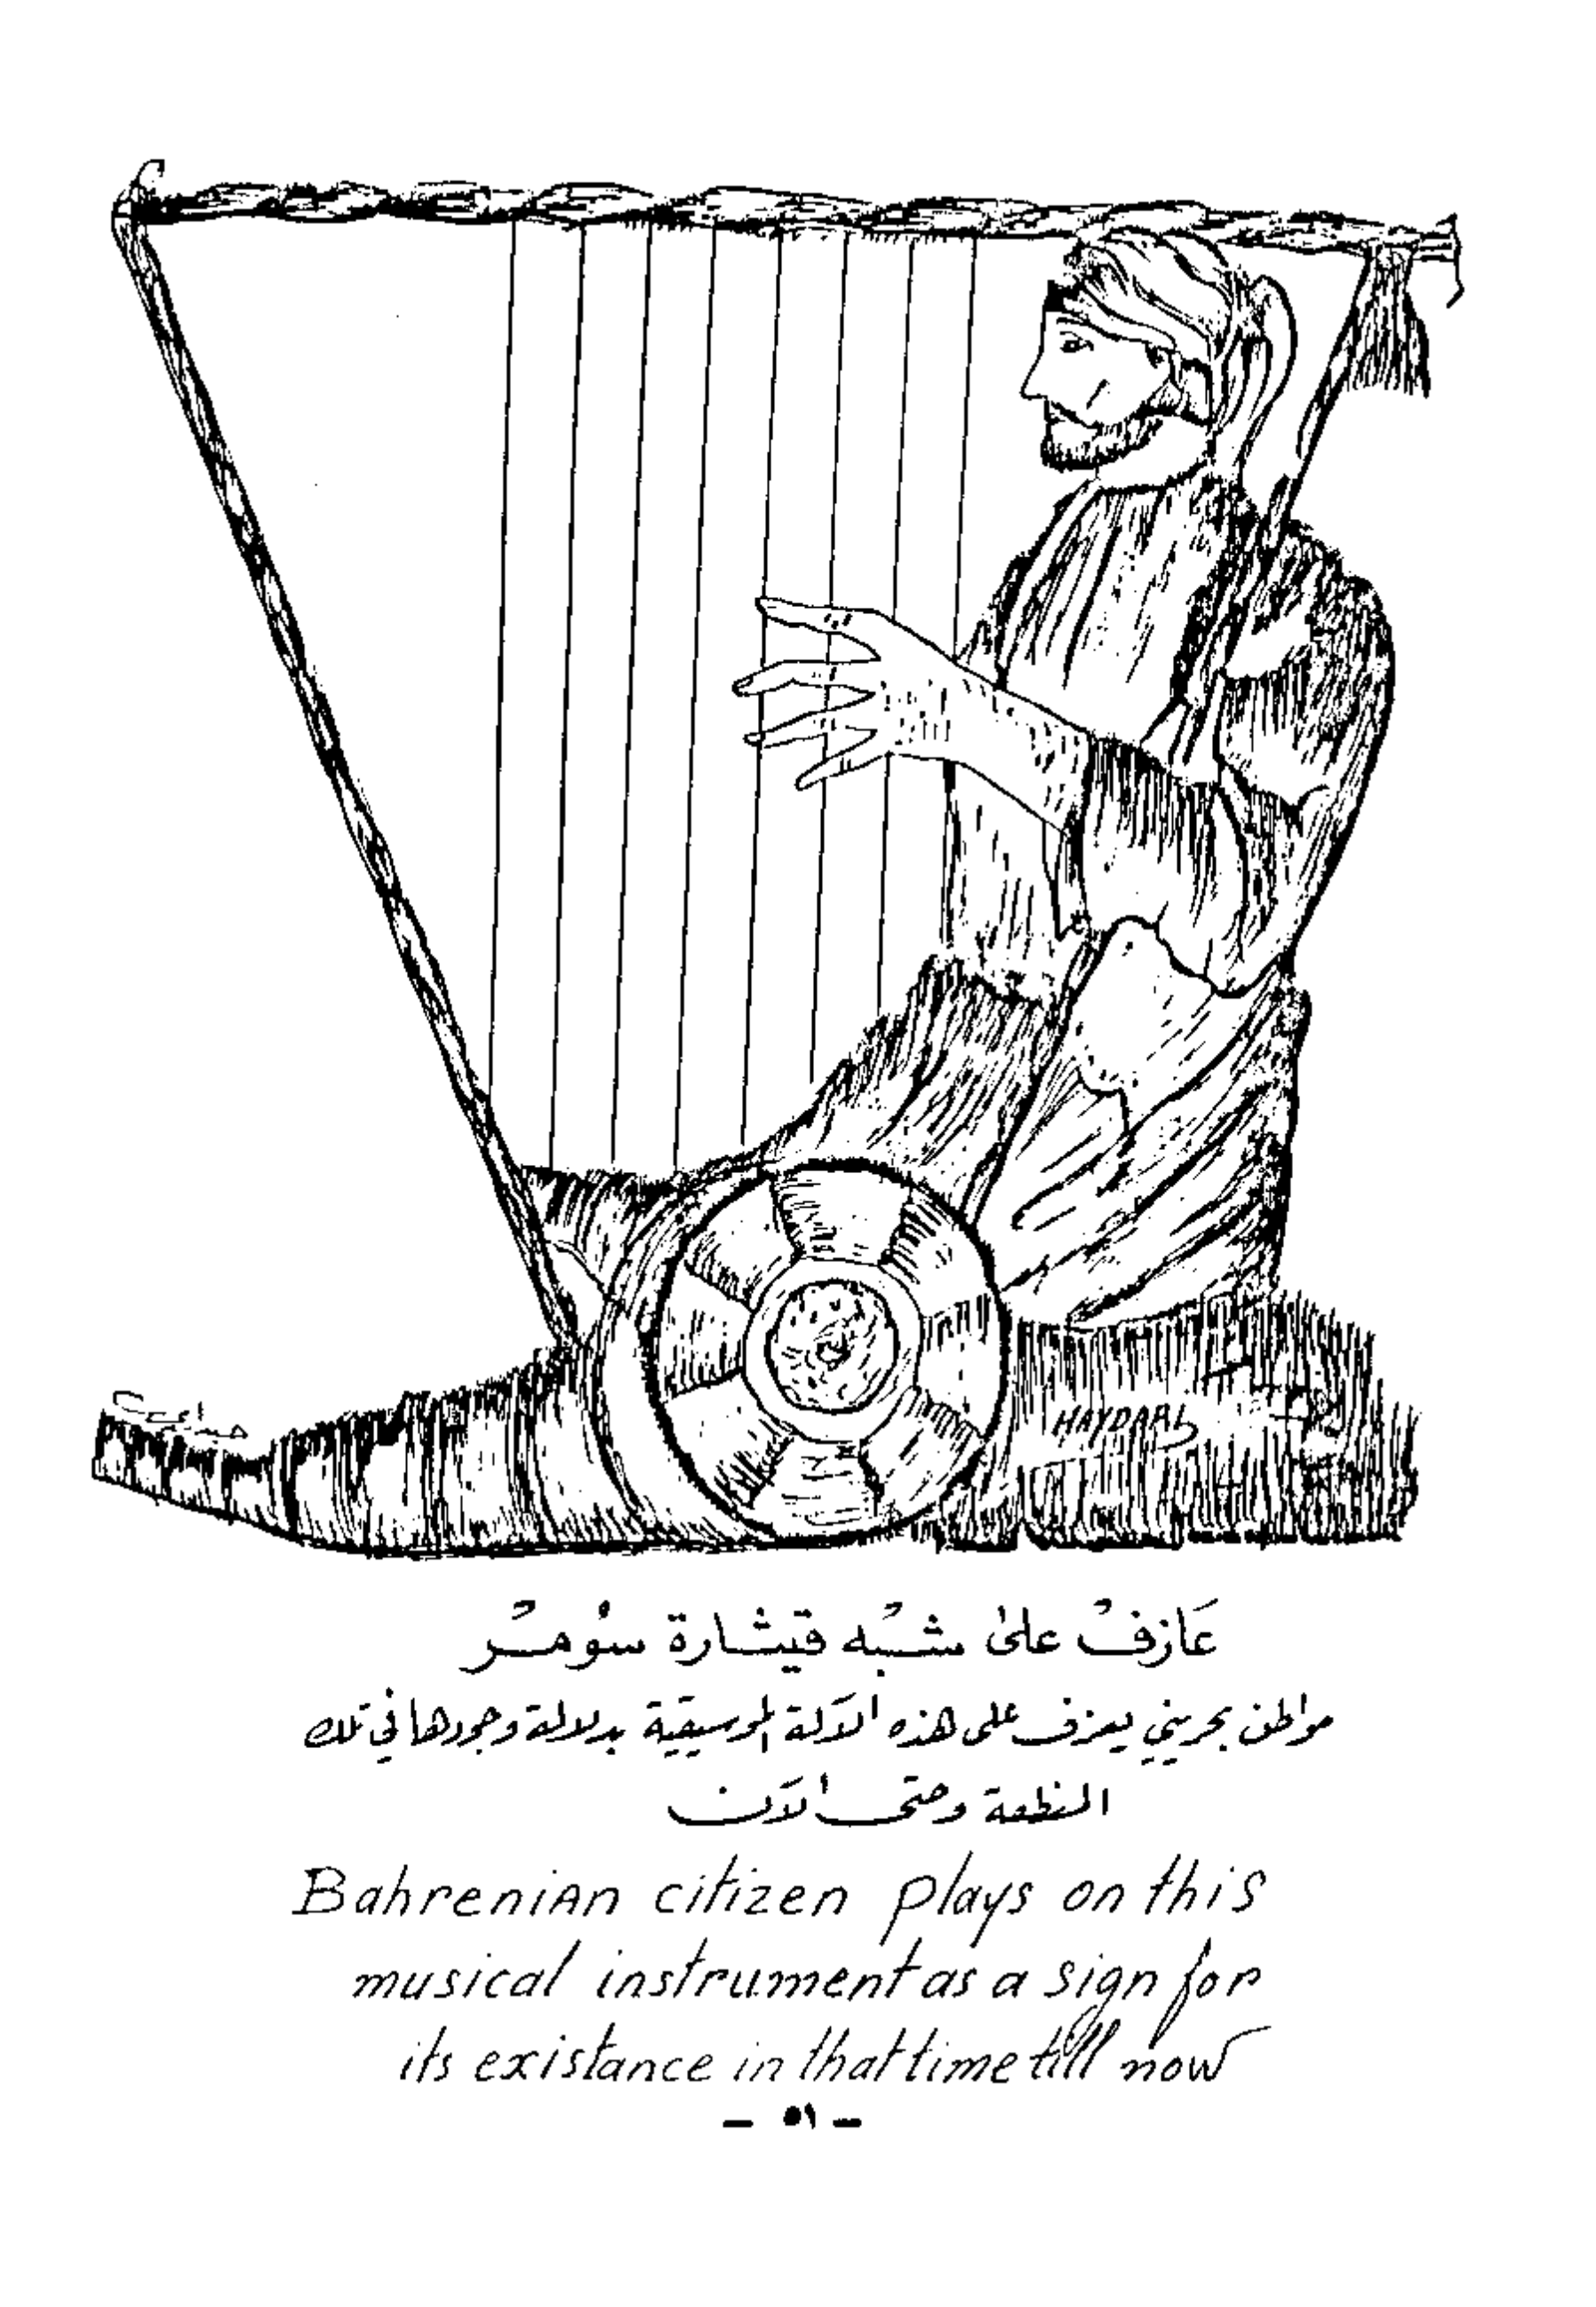 HAYDARL
عَازفْ علىٰ شبْه قيشارة سوُمرْ
مواطن بحريني يعزف على هذه الآلة الموسيقية بدلالة وجودها في تلك
المنطقة وحتى الآن
BahreniAn citizen plays on this
musical instrument as a sign for
its existance in that time till now
- ٥١ -